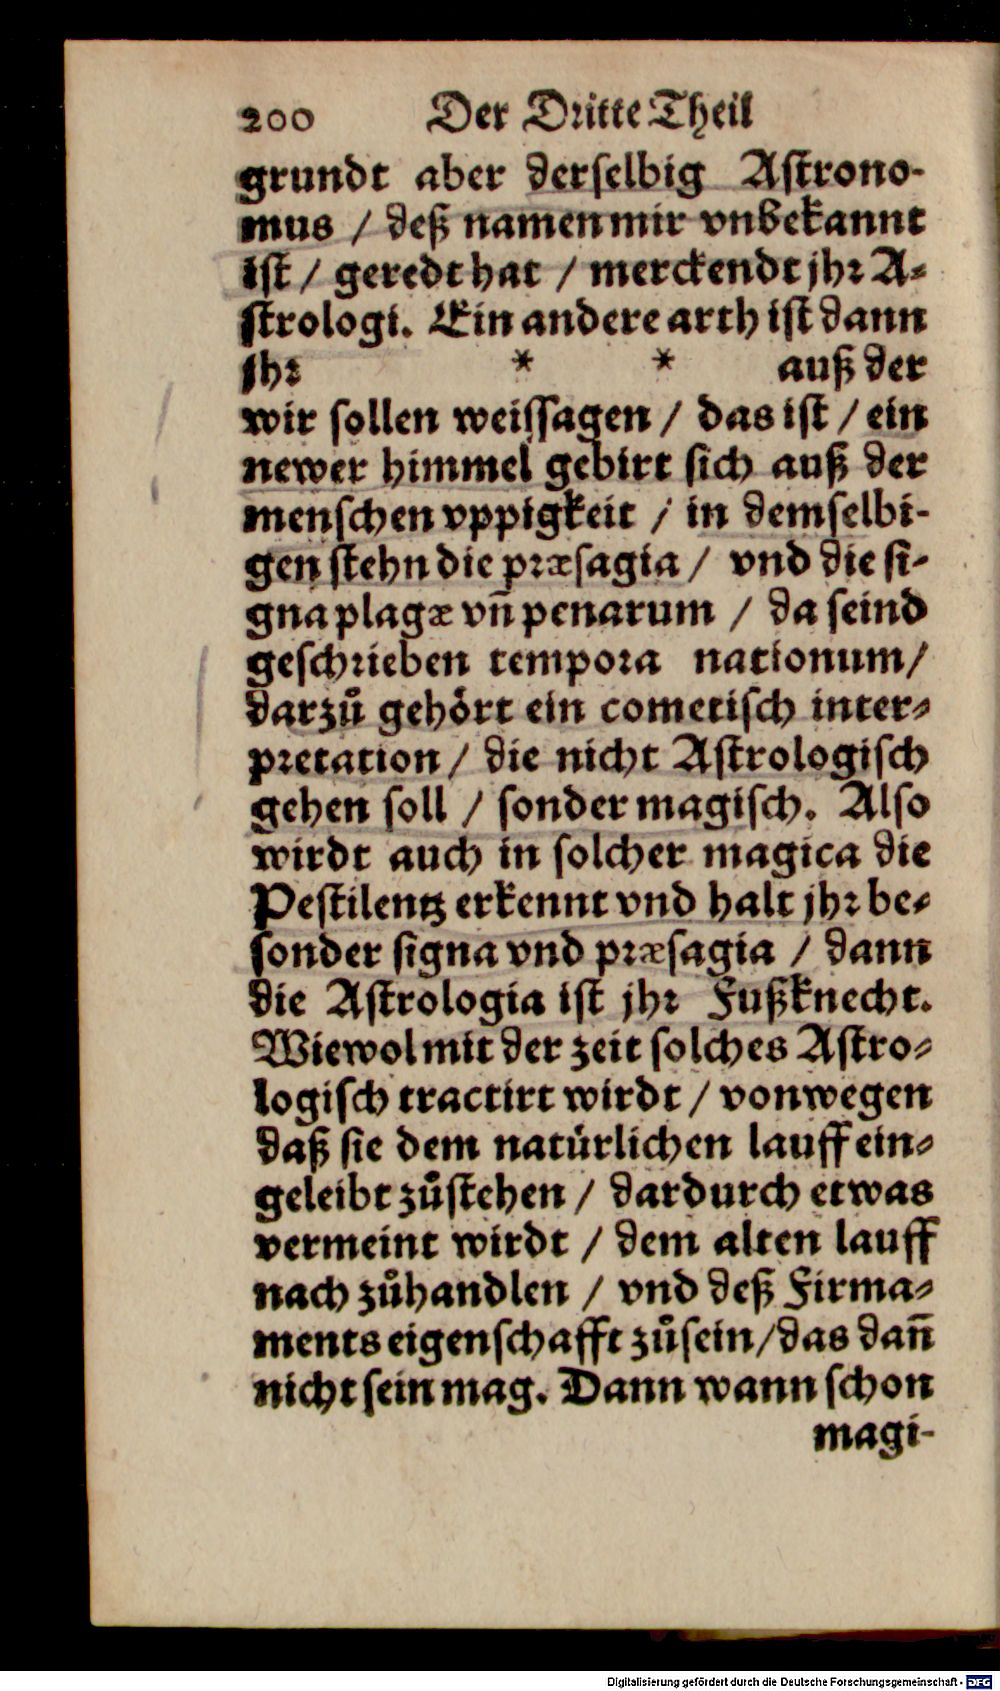 200 Der Dritte Theil
grundt aber derselbig Astrono-
mus / deß namen mir vnbekannt
ist / geredt hat / merckendt jhr A-
strologi. Ein andere arth ist dann
jhr * * auß der
wir sollen weissagen / das ist / ein
newer himmel gebirt sich auß der
menschen vppigkeit / in demselbi-
gen stehn die præsagia / vnd die si-
gna plagæ vn̄ penarum / da seind
geschrieben tempora nationum /
darzů gehört ein cometisch inter-
pretation / die nicht Astrologisch
gehen soll / sonder magisch. Also
wirdt auch in solcher magica die
Pestilentz erkennt vnd halt jhr be-
sonder signa vnd præsagia / dann
die Astrologia ist jhr Fußknecht.
Wiewol mit der zeit solches Astro-
logisch tractirt wirdt / von wegen
daß sie dem natürlichen lauff ein-
geleibt zůstehen / dardurch etwas
vermeint wirdt / dem alten lauff
nach zůhandlen / vnd deß Firma-
ments eigenschafft zůsein / das dan̄
nicht sein mag. Dann wann schon
magi-
Digitalisierung gefördert durch die Deutsche Forschungsgemeinschaft - DFG